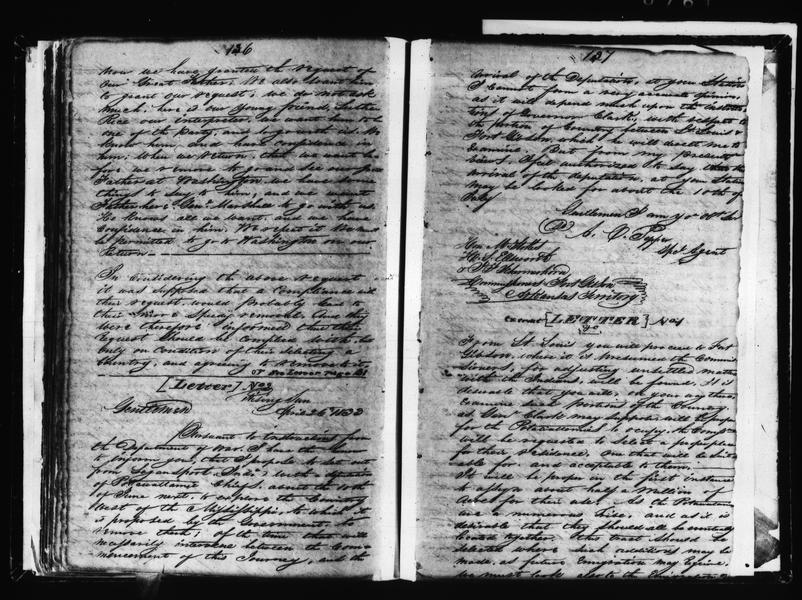 136
now we have granted the request of
our Great Father, We also want him
to grant our request; we do not ask
much: here is our young friend, Luther
Rice our interpreter, we want him to be
one of the party, and to go with us. We
know him, and have confidence in
him. When we return, then we want
to go and see our
Father at Washington, we have
thing to say to him, and we want
Father here Genl. Marshall to go with us.
He knows all we want, and we have
confidence in him. We repeat it We must
be permitted to go to Washington on our
return
In considering the above request
it was supposed that a compliance with
their request would probably lead to
their more speedy removal. And they
were therefore informed that their
request should be complied with, but
only on condition of their selecting a
Country, and agreeing to remove to it
[Letter] No 3
Gentlemen
Pursuant to instructions from
the Department of War, I has the honor
to inform you that I propose to set out
from Logansport, Inda; with a deputation
of Pottawattamie Chiefs, about the 10th
of June next, to explore the Country
West of the Mississippi, to which it
is proposed by the Government, to
remove them; of the time that will
necessarily intervene between the Com-
mencement of this Journey, and the
137
arrival of the Deputation, at your Station
I cannot form a very accurate opinion,
as it will depend much upon the instruc-
tions of Governor Clark; with respect to
the portion of Country between St. Louis &
Fort Gibson, which he will direct me to
examine. But from my present
views I feel authorized to say that the
arrival of the deputation, at your Station
may be looked for about the 10th of
July
Gentlemen I am yr Obt St
A. C. Pepper
Spcl. Agent
H. L. Ellsworth
& Schermerhorn
Commissioners Fort Gibson
Arkansas Territory
[LETTER] No 4
From St. Louis you will proceed to Fort
Gibson, where it is presumed the Commis-
sioners, for adjusting unsettled matters
with the Indians, will be found. It is
desirable that you will, on your way there,
examine such portions of the Country,
as Genl Clark may
for the Potawatamies to occupy, the Commrs
will be requested to select a proper place
for their residence. One that will be suit-
able for, and acceptable to them.
It will be proper in the first instance
to assign about half a million of
Acres for their use. But the Potawatamies
are a numerous tribe, and as it is
desirable that they should all be eventually
located together. This tract should be
selected where such additions may be
made, as future emigration may require.
We must look also to the Emigration